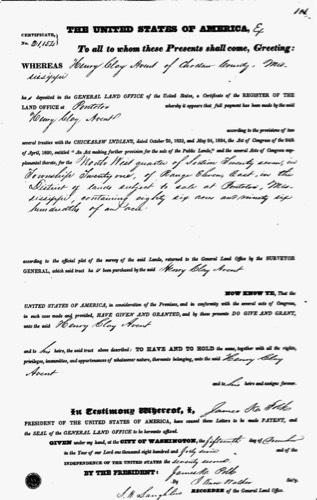 THE UNITED STATES OF AMERICA,
CERTIFICATE,
No.
To all to whom these Presents shall come, Greeting:
WHEREAS Henry Clay Avent of Choctaw County, Mis-
sissippi
ha s deposited in the GENERAL LAND OFFICE of the United States, a Certificate of the REGISTER OF THE
LAND OFFICE at Pontotoc whereby it appears that full payment has been made by the said
Henry Clay Avent
according to the provisions of two
several treaties with the CHICKASAW INDIANS, dated October 20, 1832, and May 24, 1834, the Act of Congress of the 24th
of April, 1820, entitled "An Act making further provision for the sale of the Public Lands," and the several Acts of Congress sup-
plemental thereto, for the North West quarter of Section Twenty seven, in
Township Twenty one, of Range Eleven, East, in the
District of lands subject to sale at Pontotoc, Mis-
sissippi, containing eighty six acres and ninety six
hundredths of an acre
according to the official plat of the survey of the said Lands, returned to the General Land Office by the SURVEYOR
GENERAL, which said tract ha s been purchased by the said Henry Clay Avent
NOW KNOW YE, That the
UNITED STATES OF AMERICA, in consideration of the Premises, and in conformity with the several acts of Congress,
in such case made and provided, HAVE GIVEN AND GRANTED, and by these presents DO GIVE AND GRANT,
unto the said Henry Clay Avent
and to his heirs, the said tract above described: TO HAVE AND TO HOLD the same, together with all the rights,
privileges, immunities, and appurtenances of whatsoever nature, thereunto belonging, unto the said Henry Clay
Avent
and to his heirs and assigns forever.
In Testimony Whereof, I, James K. Polk
PRESIDENT OF THE UNITED STATES OF AMERICA, have caused these Letters to be made PATENT, and
the SEAL of the GENERAL LAND OFFICE to be hereunto affixed.
GIVEN under my hand, at the CITY OF WASHINGTON, the fifteenth day of December
in the Year of our Lord one thousand eight hundred and forty seven and of the
INDEPENDENCE OF THE UNITED STATES the seventy second
BY THE PRESIDENT: James K. Polk
By J. Knox Walker
S. H. Laughlin RECORDER of the General Land Office.